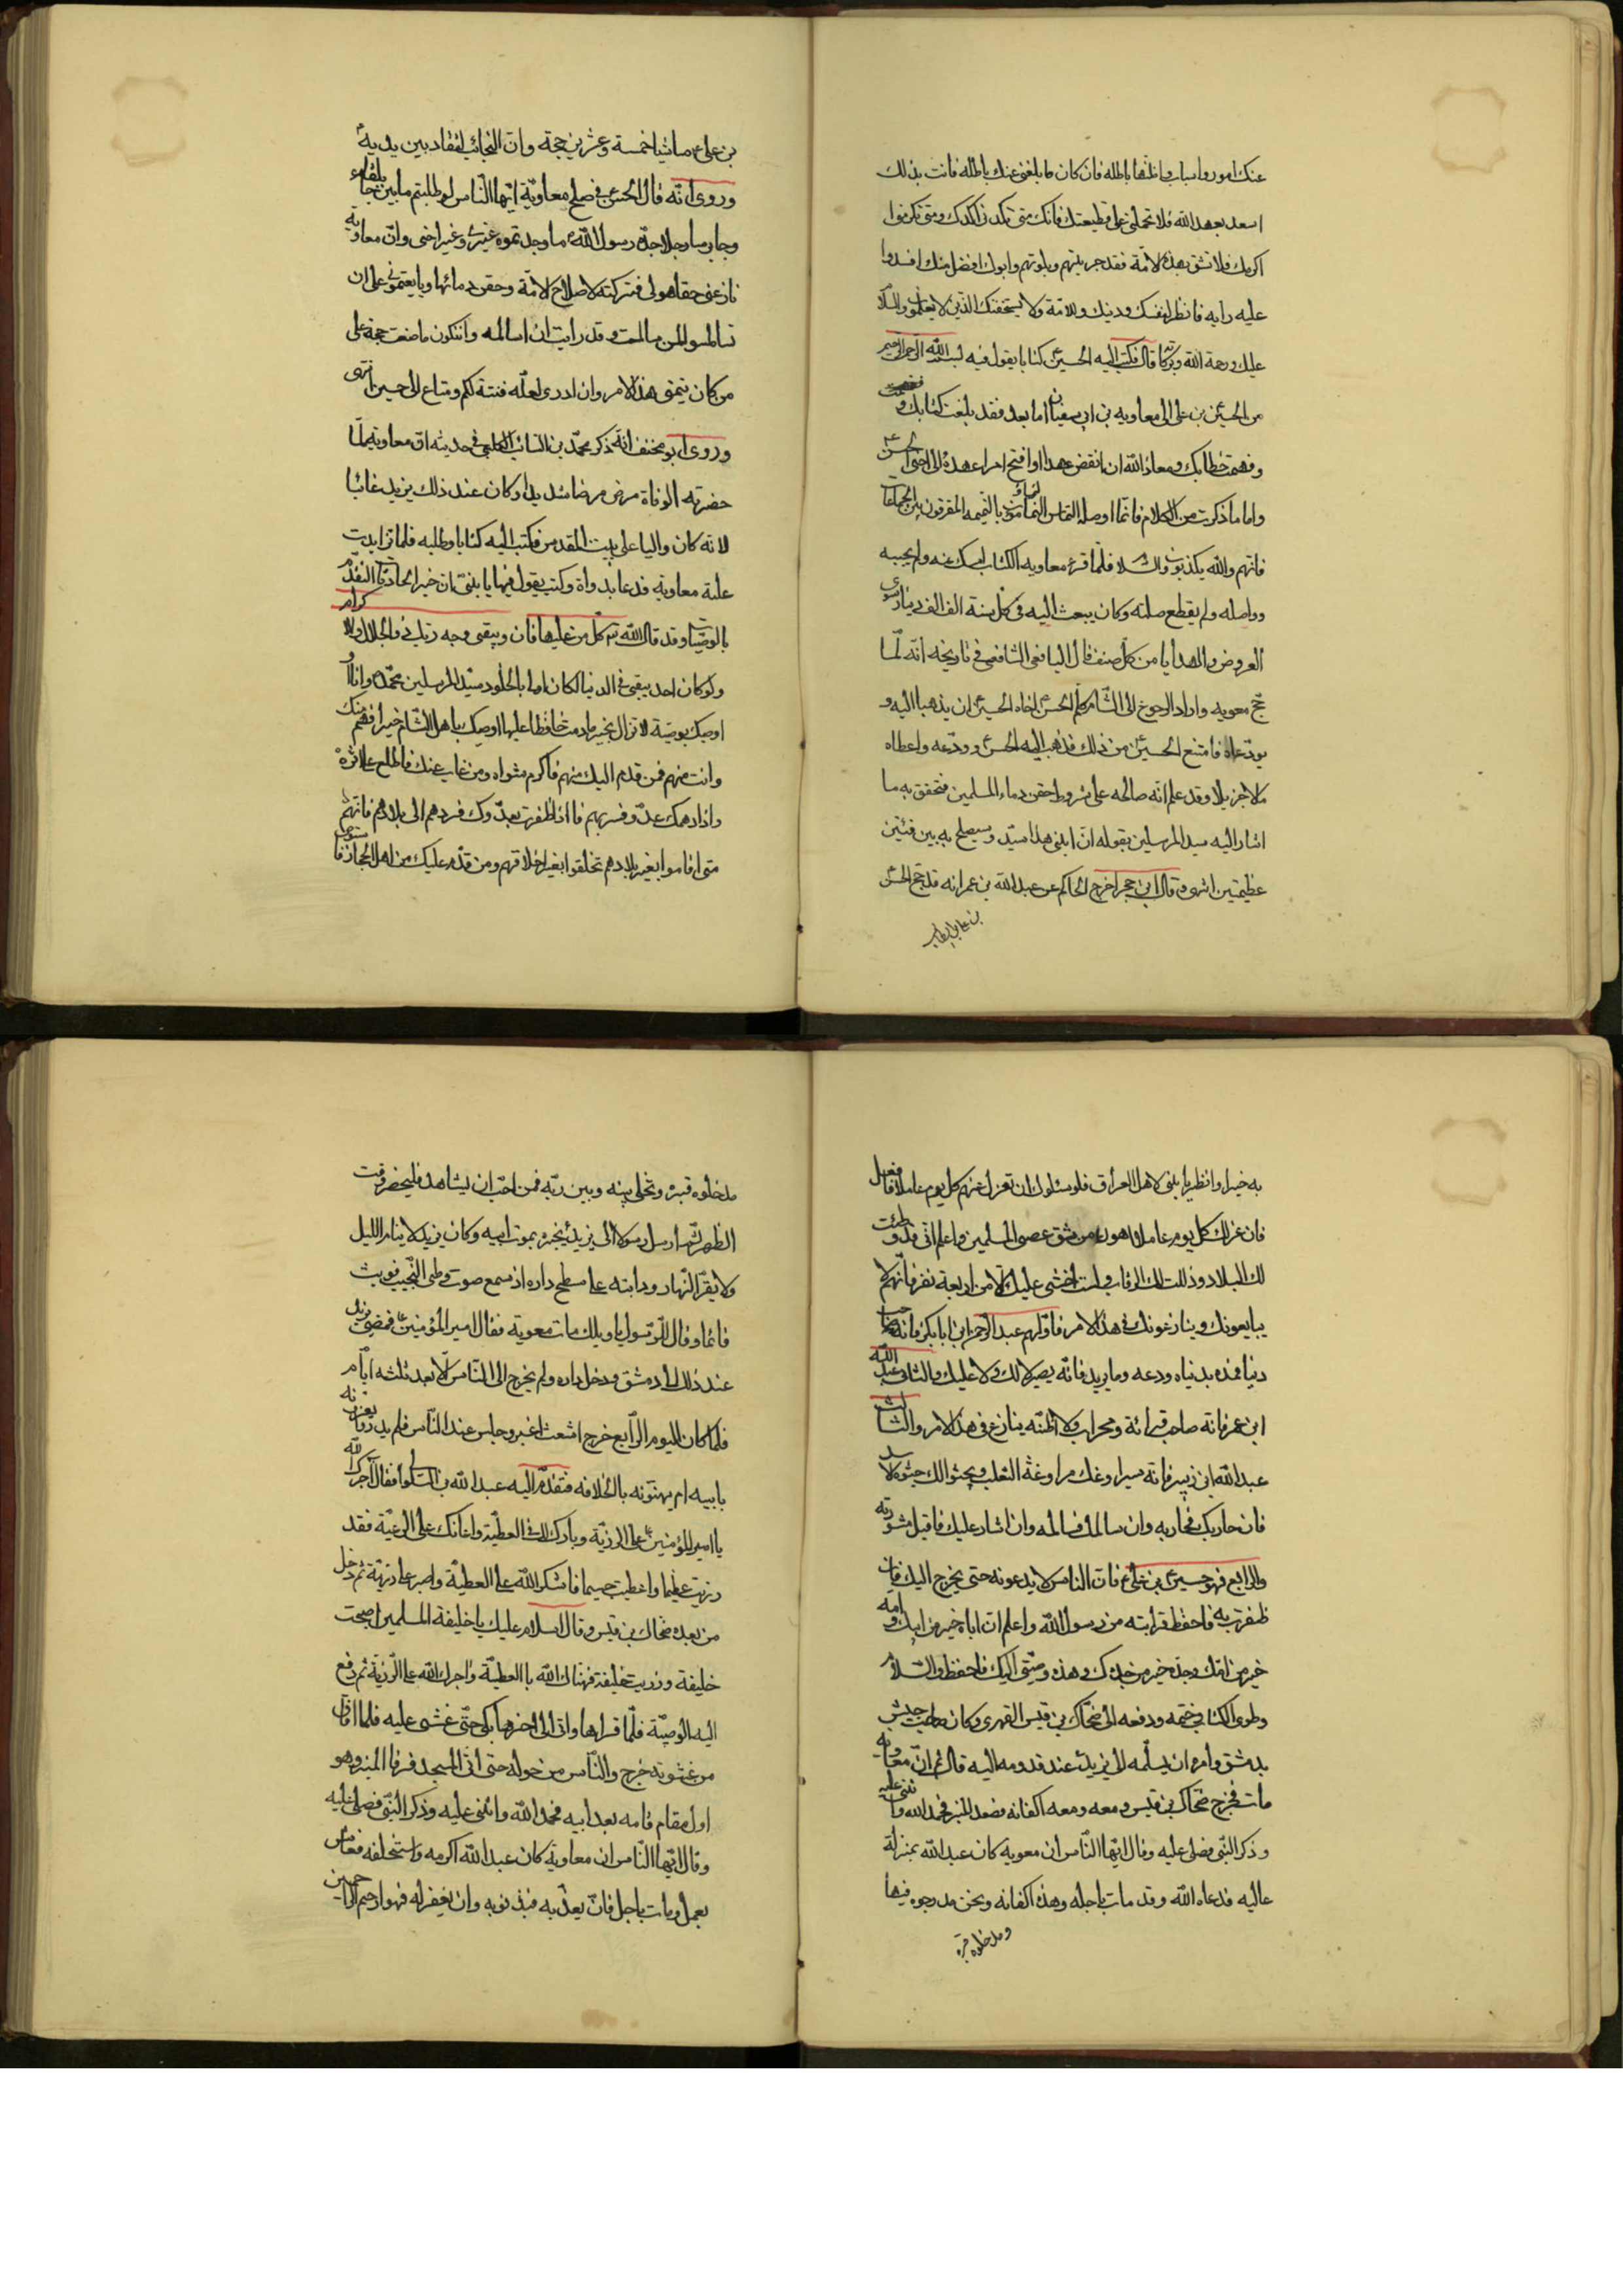 عنك امور واسباب واظنها باطله فان كان ما بلغنى عنك باطله فانت بذلك
اسعد بعهد الله فلا تحملنى على قطيعتك فانك متى تكدنى اكدك ومتى تكرمنى
اكرمك فلا تشق بهذه الامة فقد جربتهم وبلوتهم وابوك افضل منك افسدوا
عليه رايه فانظر لنفسك ودينك وللامة ولا يستخفنك الذين لا يعلمون والسلام
عليك ورحمة الله وبركاته قال فكتب اليه الحسين كتابا يقول فيه بسم الله الرحمن الرحيم
من الحسين بن على الى معاويه بن ابى سفيان اما بعد فقد بلغت كتابك
وفهمت خطابك ومعاذ الله ان انقض عهدا اوافتح امرا عهده الى اخى الحسن
واما ما ذكرت من الكلام فانما اوصله بالنميمه المفرقون بين الجماعات
فانهم والله يكذبون والسلام فلما قرء معاويه الكتاب امسك عنه ولم يجيبه
وواصله ولم يقطع صلته وكان يبعث اليه فى كل سنة الف الف دينار سوى
العروض والهدايا من كل صنف قال اليافعى الشافعى فى تاريخه انه لما
حج معويه واراد الرجوع الى الشام كلم الحسن اخاه الحسين ان يذهبا اليه و
يودعاه فامتنع الحسين من ذلك فذهب اليه الحسن وودعه واعطاه
مالا جزيلا وقد علم انه صالحه على شروط احقن دماء المسلمين فتحقق به ما
اشار اليه سيد المرسلين بقوله ان ابنى هذا سيد وسيصلح به بين فئتين
عظيمتين انتهى وقال ابن حجر اخرج الحاكم عن عبدالله بن عمر انه قد حج الحسن
بن على
بن على ماشيا خمسة وعشرين حجة وان النجائب لتقاد بين يديه
وروى انه قال الحسن فى صلح معاوية ايها الناس لو طلبتم ما بين جابلقا
وجابرسا رجلا جده رسول الله ما وجدتموه غيرى وغير اخى وان معاوية
نازعنى حقا هو لى فتركته لاصلاح الامة وحقن دمائها وبايعتمونى على ان
تسالموا من سالمت وقد رايت ان اسالمه وان يكون ما صنعت حجة على
من كان يتمنى هذا الامر وان ادرى لعله فتنة لكم ومتاع الى حين انتهى
وروى ابو مخنف انه ذكر محمد بن السائب الكلبى فى حديثه ان معاوية لما
حضرته الوفاة مرض مرضا شديدا وكان عند ذلك يزيد غائبا
لانه كان واليا على بيت المقدس فكتب اليه كتابا وطلبه فلما تزايدت
علة معاوية فدعا بدواة وكتب يقول فيها يا بنى ان خير الحادث التقدم
بالوصية وقد قال الله تع كل من عليها فان ويبقى وجه ربك ذو الجلال والاكرام
ولو كان احد يبقى فى الدنيا لكان اهلا بالخلود سيد المرسلين محمد وانا
اوصيك بوصية لا تزال بخير ما دمت حافظا عليها اوصيك باهل الشام خيرا فهم منك
وانت منهم فمن قدم اليك منهم فاكرم مثواه ومن غاب عنك فاطلع على اثره
واذا دهمك عدو فسر بهم فاذا ظفرت بعدوك فردهم الى بلادهم فانهم
متى اقاموا بغير بلادهم تخلقوا بغير اخلاقهم ومن قدم عليك من اهل الحجاز فاستوص
به خيرا وانظر يا بنى لاهل العراق فلو سئلوك ان تعزل عنهم كل يوم عاملا فافعل
فان عزلك كل يوم عامل اهون من شق عصى المسلمين واعلم انى قد وطئت
لك البلاد وذللت لك الرقاب ولست اخشى عليك الا من اربعة نفر فانهم لا
يبايعونك وينازعونك فى هذا الامر فاولهم عبد الرحمن ابن ابا بكر فانه صاحب
دنيا فمده بدنياه ودعه وما يريد فانه يصير لا لك ولا عليك والثانى عبد الله
ابن عمر فانه صاحب قرائة ومحراب ولا اظنه ينازع فى هذا الامر والثالث
عبد الله ابن زبير فانه سيراوغك مراوغة الثعلب ويجثوا لك جثوة الاسد
فان حاربك فحاربه وان سالمك فسالمه وان اشار عليك فاقبل مشورته
والرابع فهو حسين بن على فان الناس لا يدعونه حتى يخرج اليك فان
ظفرت به فاحفظ قرابته من رسول الله واعلم ان اباه خير من ابيك وامه
خير من امك وجده خير من جدك وهذه وصيتى اليك فاحفظ والسلام
وطوى الكتاب وختمه ودفعه الى ضحاك بن قيس الفهرى وكان صاحب جيش
بدمشق وامره ان يسلمه الى يزيد عند قدومه اليه قال ثم ان معاوية
مات فخرج ضحاك بن قيس ومعه اكفانه فصعد المنبر فحمد الله واثنى عليه
وذكر النبى فصلى عليه وقال ايها الناس ان معوية كان عبد الله بمنزلة
عاليه فدعاه الله وقد مات باجله وهذه اكفانه ونحن مدرجوه فيها
ومدخلوه قبره
مدخلوه قبره ونخلى بينه وبين ربه فمن احب ان يشاهد فليحضر وقت
الظهر ثم ارسل رسولا الى يزيد يخبره بموت ابيه وكان يزيد لا ينام الليل
ولا يقر النهار ودابته على سطح داره اذ سمع صوت وطى النجيب فوثب
قائما وقال للرسول يا ويلك مات معوية فقال امير المؤمنين فمضى يزيد
عند ذلك الى دمشق ودخل داره ولم يخرج الى الناس الا بعد ثلثه ايام
فلما كان اليوم الرابع خرج اشعث اغبر وجلس عند الناس فلم يدروا يعزونه
بابيه ام يهنونه بالخلافه فتقدم اليه عبد الله بن السلولى فقال آجرك الله
يا امير المؤمنين على الرزية وبارك لك فى العطية واعانك على الرعية فقد
رزيت عظيما واعطيت جسيما فاشكر الله على العطية واصبر على رزية ثم دخل
من بعده ضحاك بن قيس وقال السلام عليك يا خليفة المسلمين اصبحت
خليفة ورزيت خليفة فهناك الله بالعطية واجرك الله على الرزية ثم دفع
اليه الوصية فلما قراها واتى الى اخرها بكى حتى غشى عليه فلما افاق
من غشوته خرج والناس من حوله حتى اتى المسجد فرقا المنبر وهو
اول مقام قامه بعد ابيه فحمد الله واثنى عليه وذكر النبى فصلى عليه
وقال ايها الناس ان معاوية كان عبد الله اكرمه واستخلفه فعاش
بعمل ومات باجل فان يعذبه فبذنوبه وان يغفر له فهو ارحم الراحمين